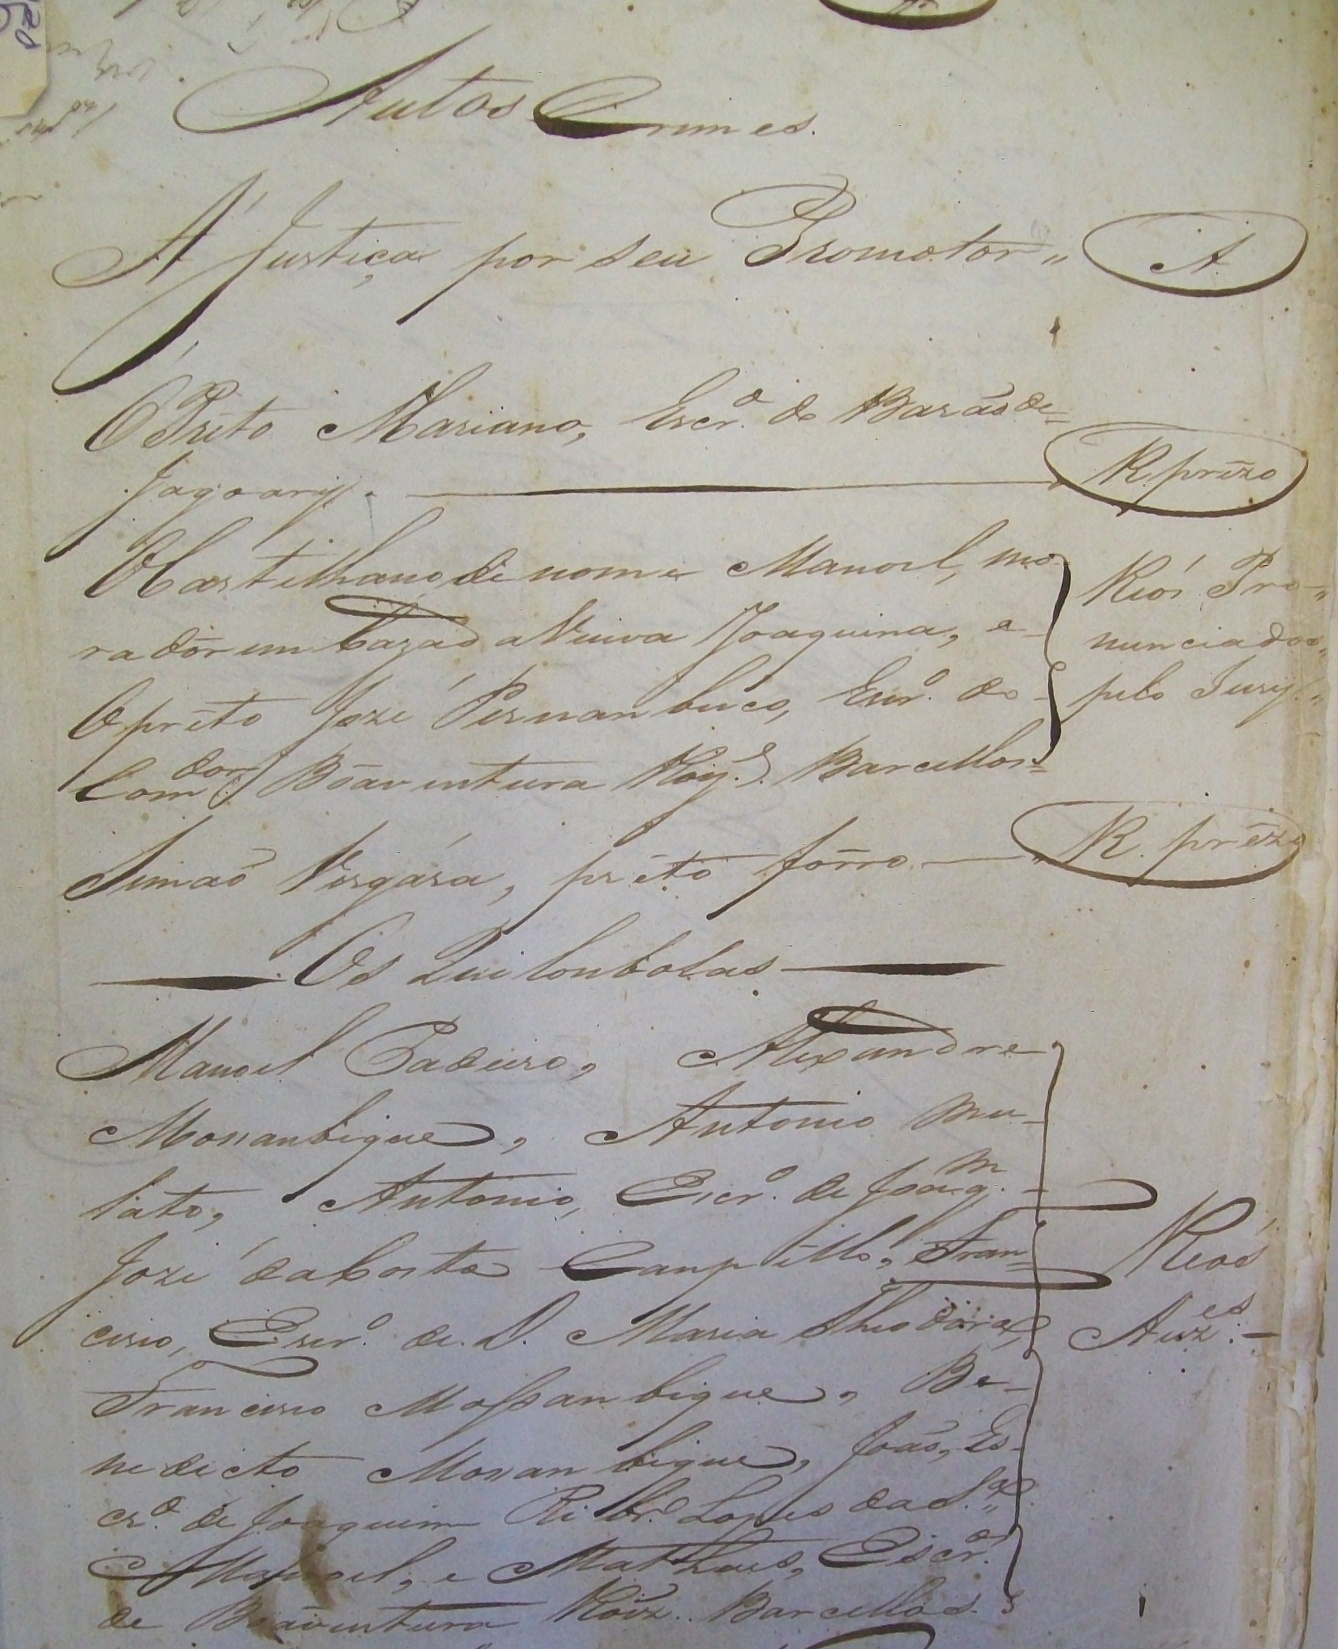 Autos Crimes.
A Justiça por seu Promotor " A
O Prêto Mariano, Escr.º do Barão de =
Jagoary. R. prêzo
O Castelhano de nome Manoel, mo-
rador em Caza da Viuva Joaquina, e
O prêto Jozé Pernambuco, Escr.º do
Com.dor Boaventura Roiz. Barcellos =
Reós Pro-
nunciados,
pelo Jury.
Simão Vergára, prêto fôrro — R. prêzo
Os Quilonbolas
Manoel Padeiro, Alexandre
Mossanbique, Antonio mu-
lato, Antonio, Escr.º de Joaq.m
Jozé da Costa Campello, Fran-
cisco, Escr.º de D. Maria Theodora,
Francisco Mossanbique, Be-
nedicto Mossanbique, João, Es-
cr.º de Joaquim Ribr.º Lopes da S.ª
Manoel, e Matheus, Escr.os
de Boaventura Roiz. Barcellos.
Reós
Auz.es